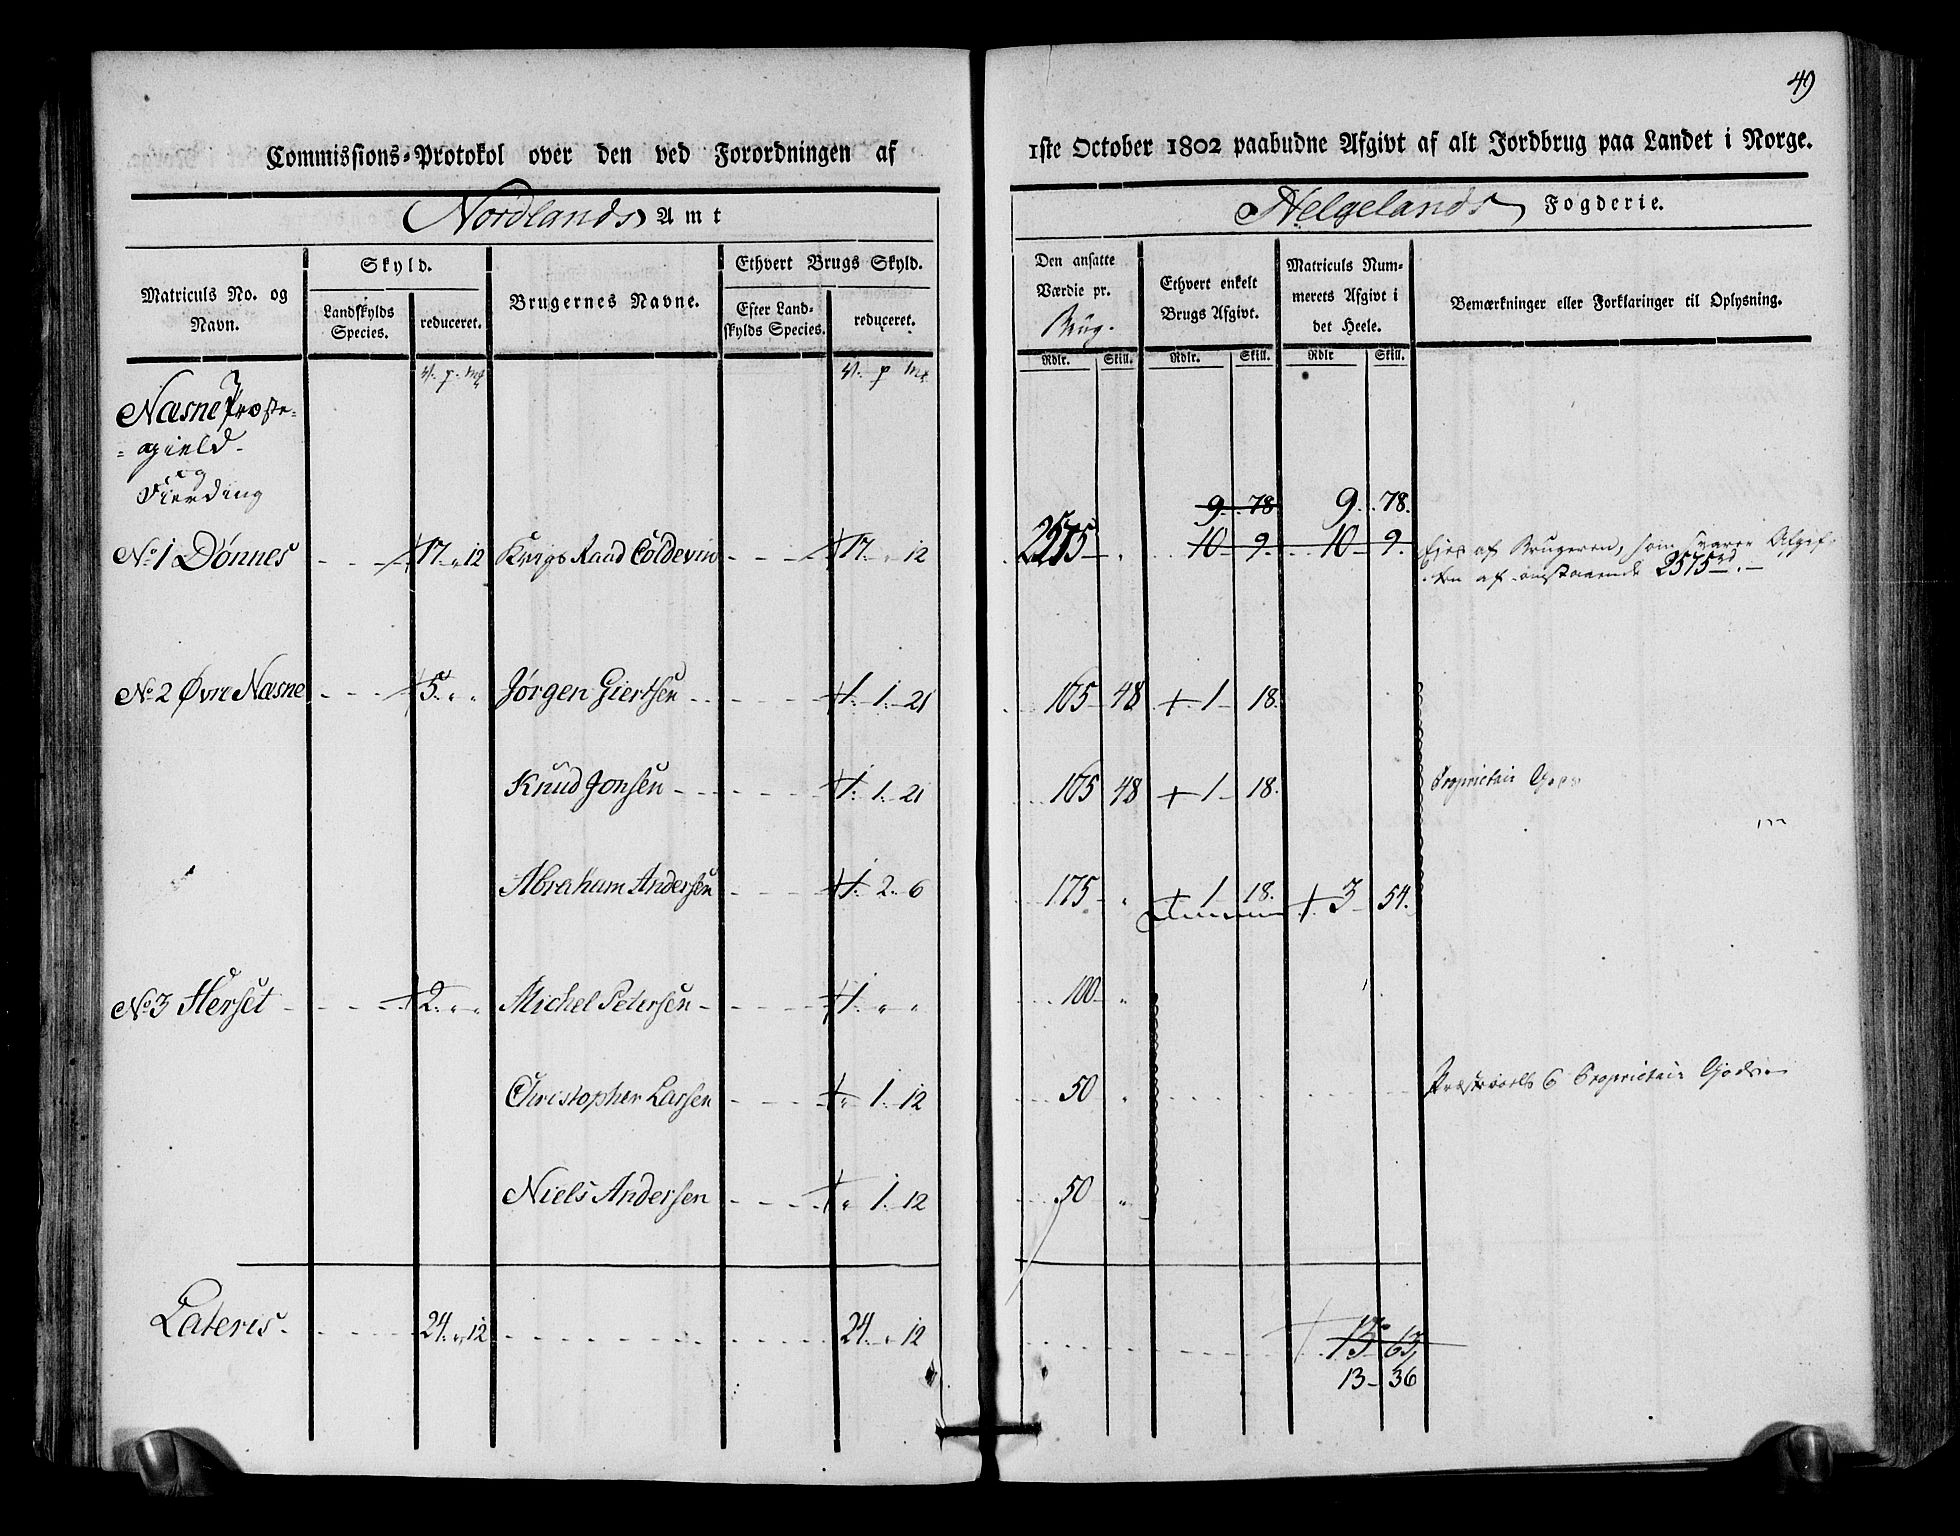 49
Commissions-Protokol over den ved Forordningen af
1ste October 1802 paabudne Afgivt af alt Jordbrug paa Landet i Norge.
Nordlands Amt
Helgelands Fogderie.
Matriculs No. og Navn.
Skyld.
Landskylds Species.
reduceret.
Brugernes Navne.
Ethvert Brugs Skyld.
Efter Landskylds Species.
reduceret.
Den ansatte Værdie pr. Brug.
Ethvert enkelt Brugs Afgivt.
Matriculs Nummerets Afgivt i det Heele.
Bemærkninger eller Forklaringer til Oplysning.
Rdlr. Skill. Rdlr. Skill. Rdlr Skill.
V. p. Mk V. p Mk
Næsne Præste=
=gield
og
Fierding
9. 78. 9. 78.
No 1 Dønnes 17. " 12 Krigs Raad Coldevin 17. " 12 2575 " 10 9. 10 9. Ejes af Brugeren, som svarer Afgif
ten af anstaaende 2575 rd.
No 2 Øvre Næsne 5. " " Jørgen Giertsen 1. 1. 21 165 48 + 1 18.
Knud Jonsen 1. 1. 21 165 48 + 1 18. Proprietair Gods
Abraham Andersen 1. 2. 6 175 " + 1 18. + 3 54.
No 3 Herset 2. " " Michel Petersen 1. " " 100 "
Christopher Larsen " 1. 12 50 " 6 Proprietair Gods
Niels Andersen " 1. 12 50 "
Lateris 24. " 12 24. " 12 13 63,
13 36